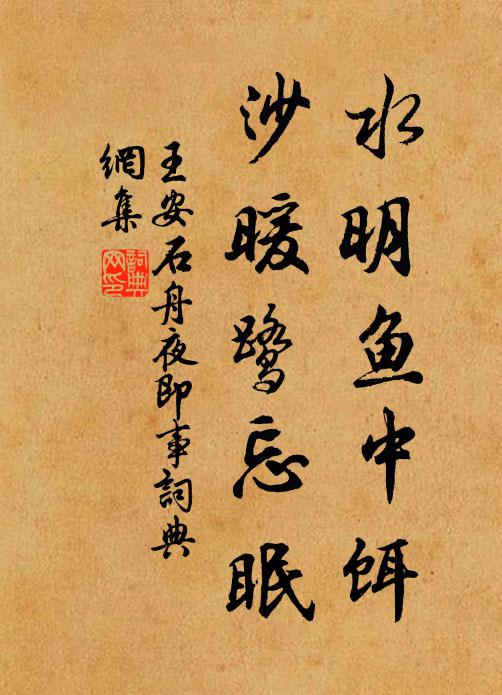 水明鱼中饵
沙暖鹭忘眠
王安石舟夜即事詞典
網集
詞典
网印